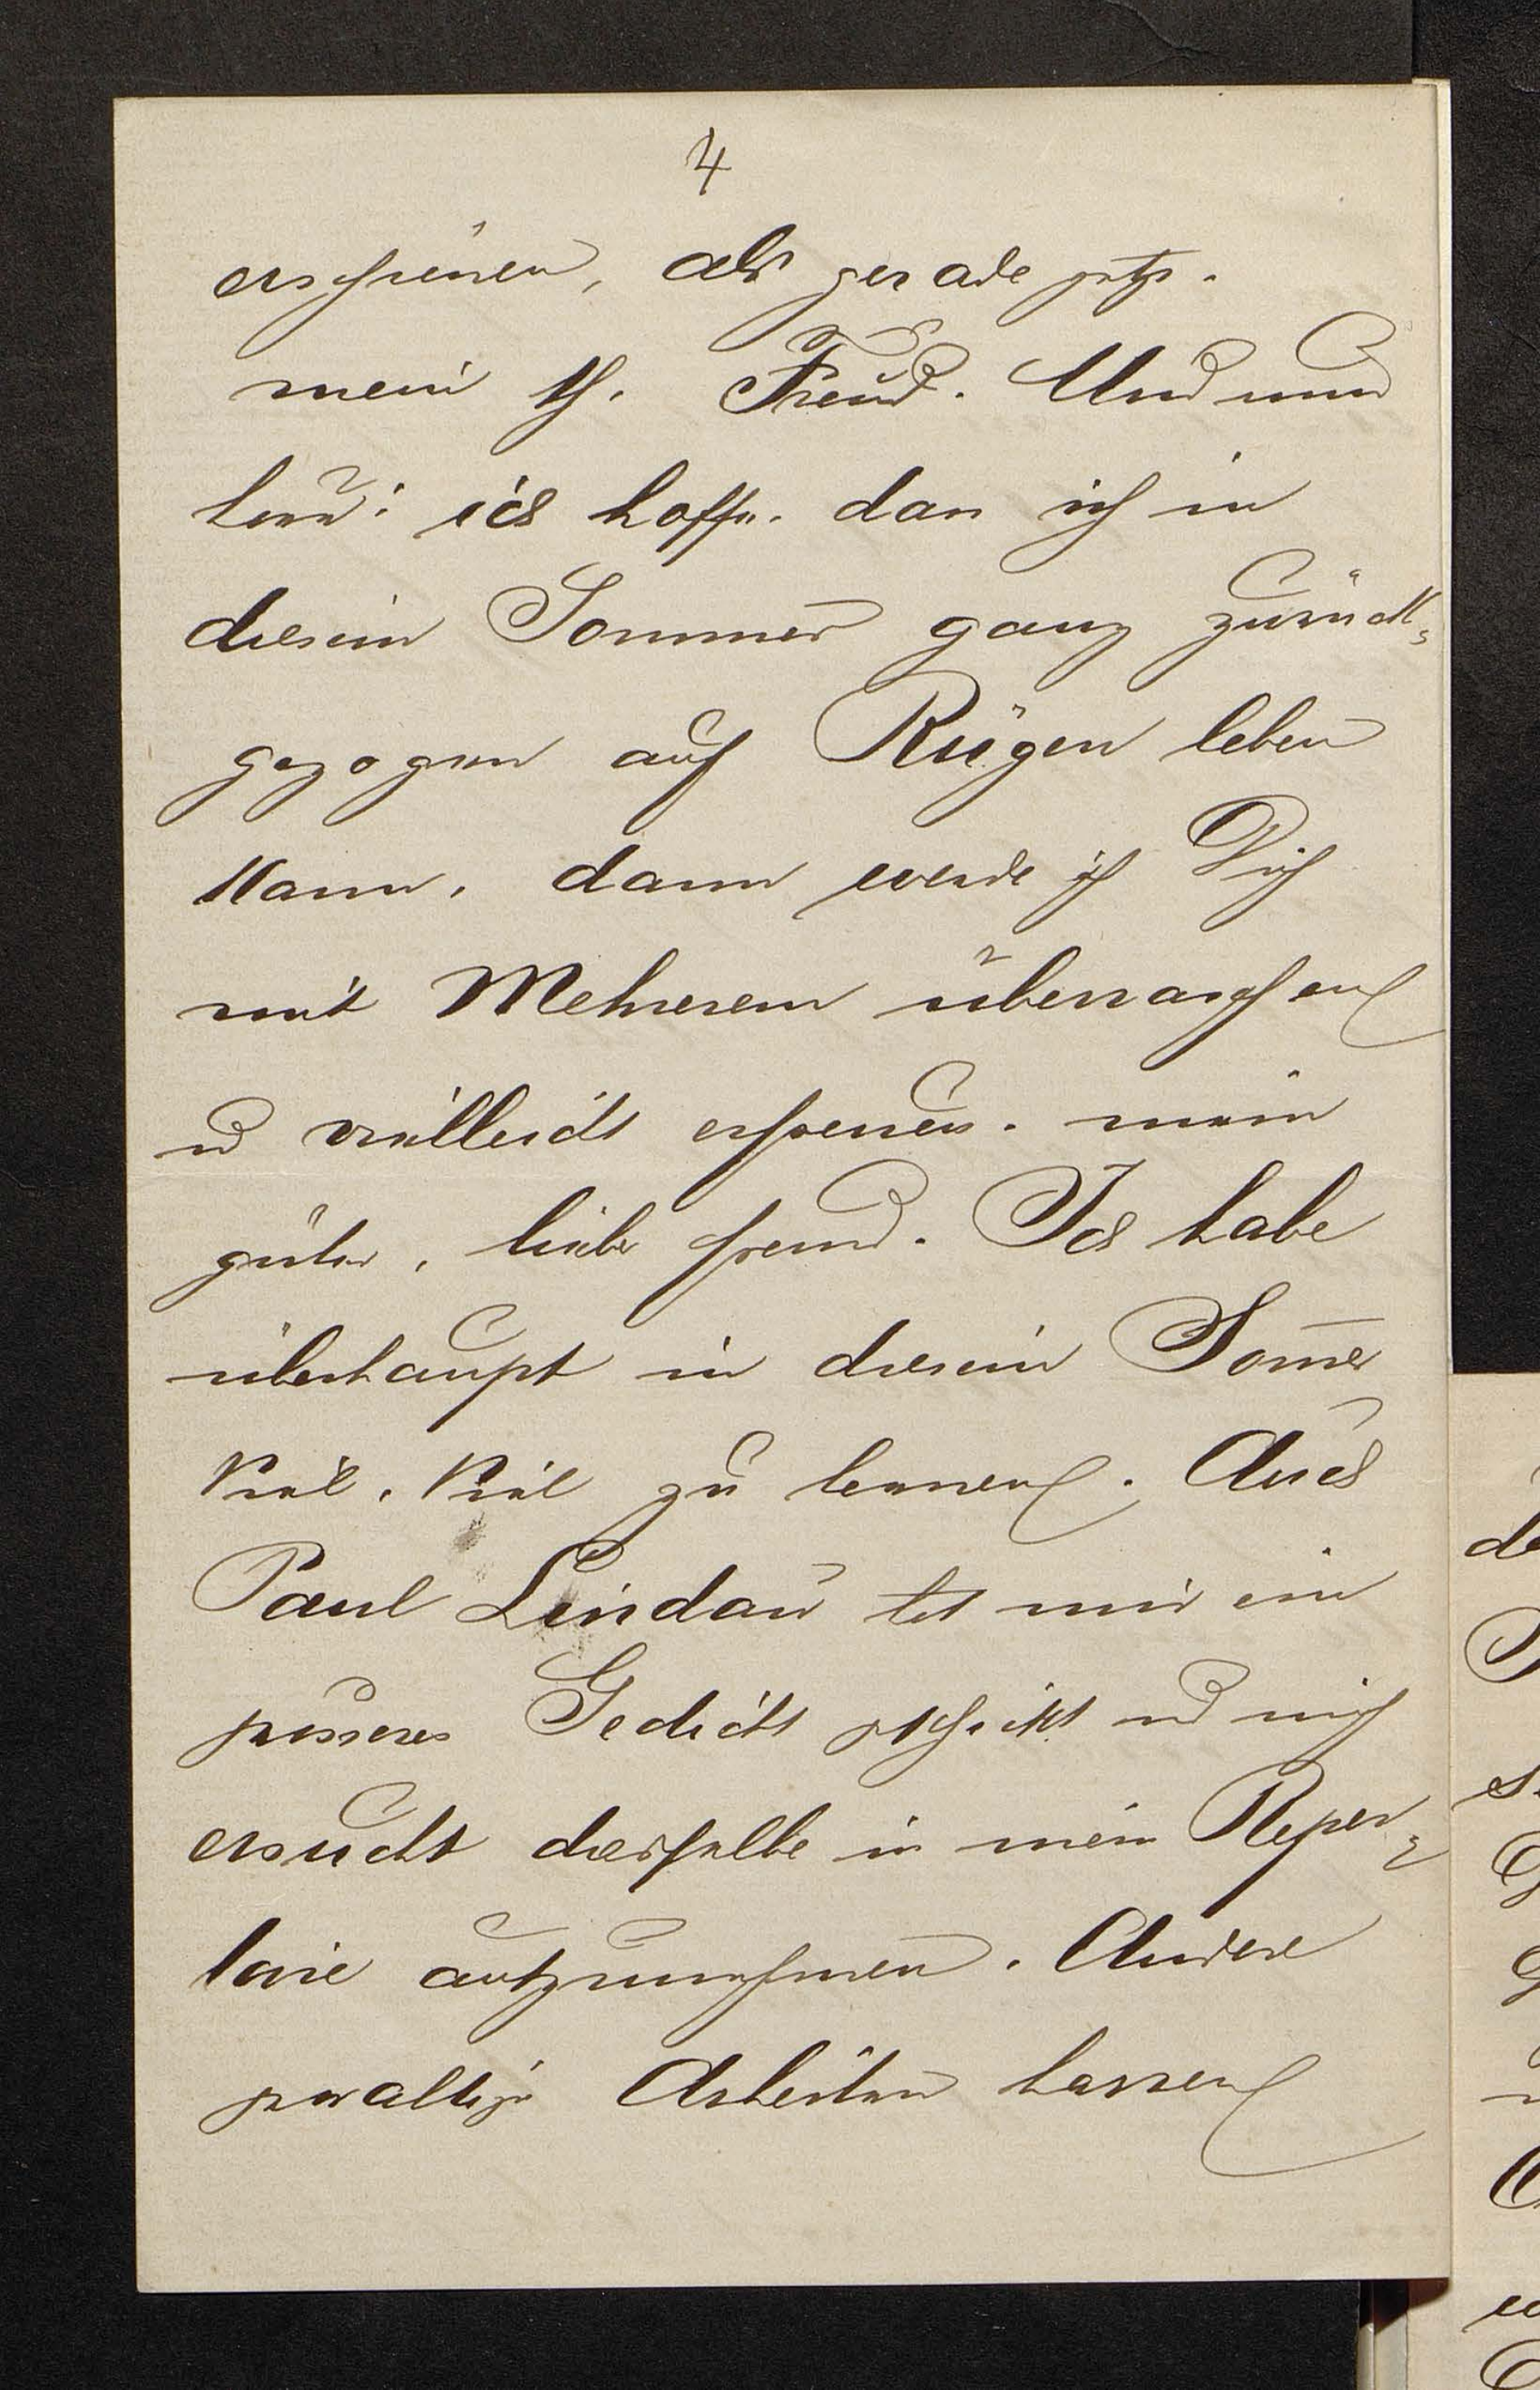 4
erschienen, als gerade jetzt.
mein th. Freund. Und nun
hoere: ich hoffe, dass ich in
diesem Sommer ganz zurück-
gezogen auf Rügen leben
kann, dann werde ich Dich
mit Mehrerem überraschen
u vielleicht erfreuen. mein
guter, lieber Freund. Ich habe
überhaupt in diesem Som̅er
viel, viel zu lernen. Auch
Paul Lindau hat mir ein
grosseres Gedicht geschickt und mich
ersucht dasselbe in mein Reper-
toire aufzunehmen. Andere
gewaltige Arbeiten harren